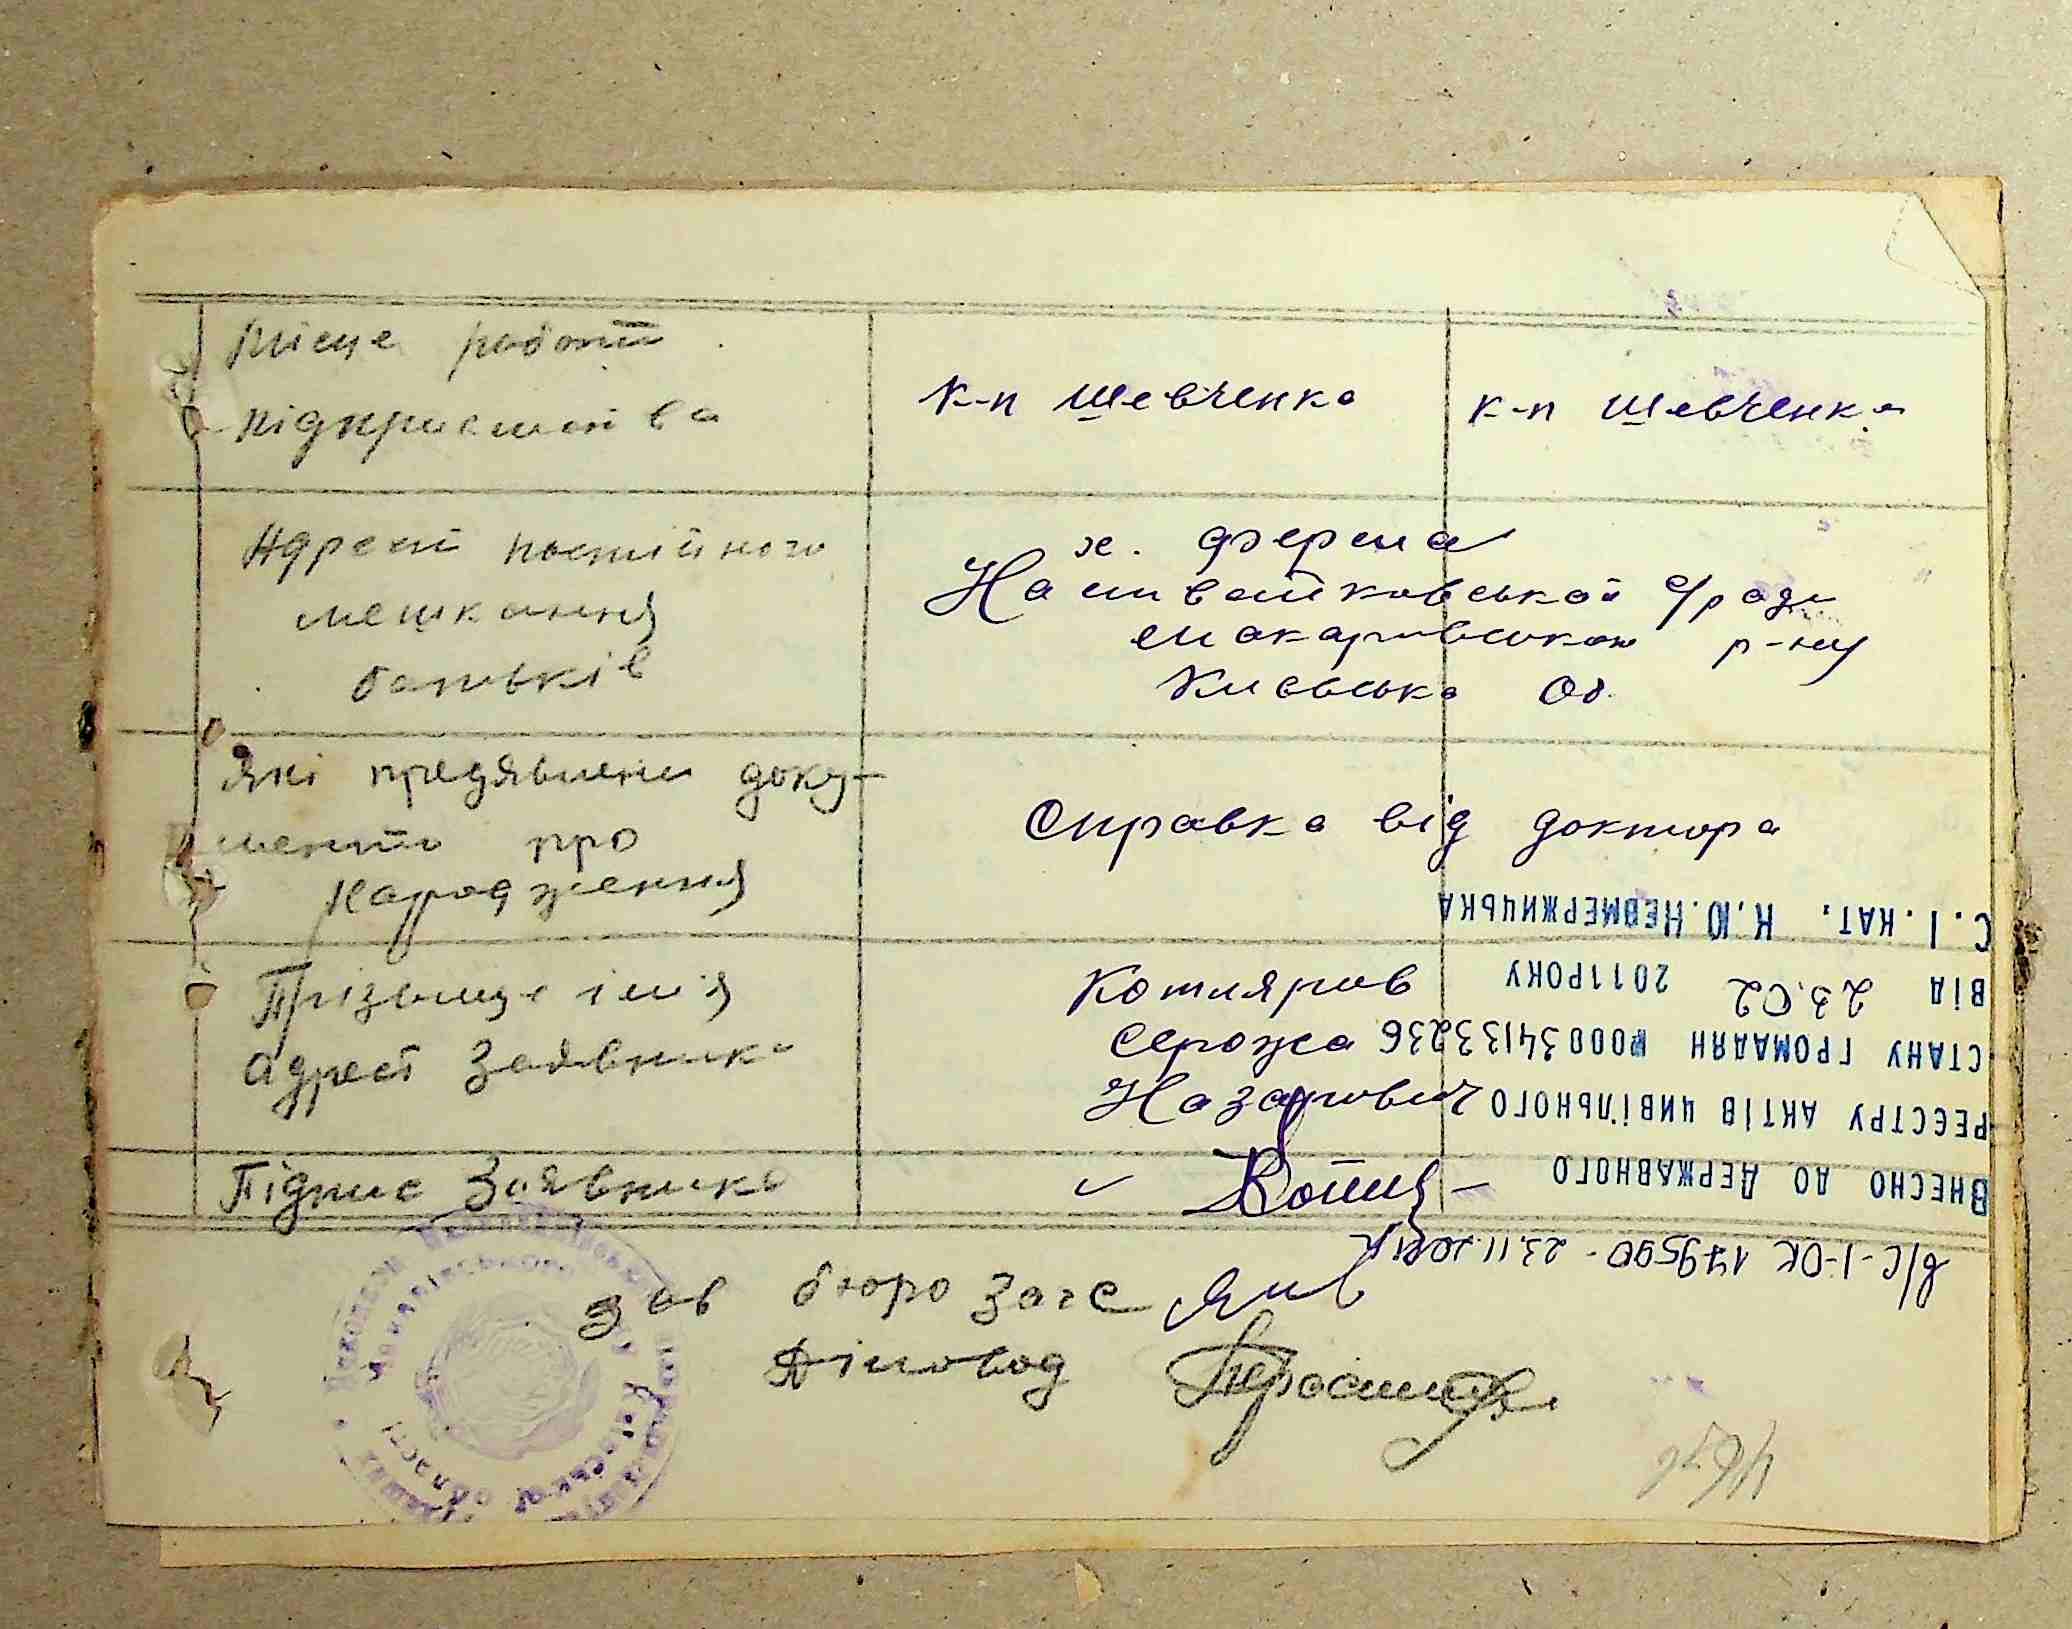 Місце работи
підприємства
к-п Шевченка
к-п Шевченка
Адреси постійного
мешкання
батьків
х. ферма
Наливайковської с/ради
Макаровського р-ну
Київська Об.
Які предявлени доку-
менти про
народження
Справка від доктора
Прізвище імʼя
адрес Заявника
Котляров
Серожа
Назарович
Підпис Заявника
Внесно до Державного
реєстру актів цивільного
стану громадян №00034133236
від 23.02 2011року
С.І.кат. Н.Ю.Невмержицька
в/с-І-ОК 179590
зав бюро Загс
Діловод
Київської
області